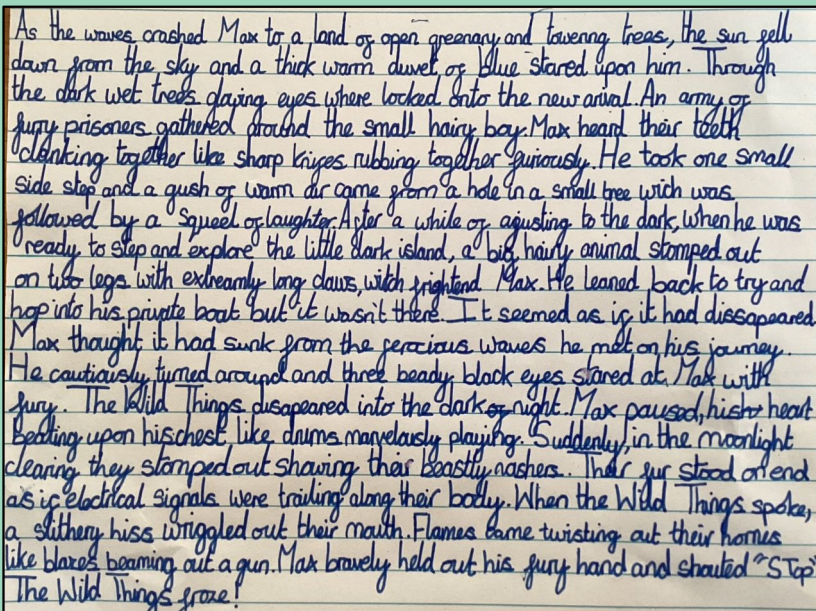 As the waves crashed Max to a land of open greenary and towering trees, the sun fell
down from the sky and a thick warm duvet of blue stared upon him. Through
the dark wet trees glaring eyes where locked onto the new arival. An army of
furry prisoners gathered around the small hairy boy. Max heard their teeth
clanking together like sharp knifes rubbing together furiously. He took one small
side step and a gush of warm air came from a hole in a small tree wich was
followed by a squeel of laughter. After a while of ajusting to the dark, when he was
ready to step and explore the little dark island, a big, hairy animal stomped out
on two legs with extreamly long claws, witch frightend Max. He leaned back to try and
hop into his private boat but it wasn't there. It seemed as if it had dissapeared
Max thought it had sunk from the ferocious waves he met on his journey.
He cautiously turned around and three beady black eyes stared at Max with
fury. The Wild Things disapeared into the dark of night. Max paused, his heart
beating upon his chest like drums marvelously playing. Suddenly, in the moonlight
clearing they stomped out showing their beastly nashers. Their fur stood on end
as if electrical signals were trailing along their body. When the Wild Things spoke,
a slithery hiss wriggled out their mouth. Flames came twisting out their hornes
like blazes beaming out a gun. Max bravely held out his fury hand and shouted "STop"
The Wild Things froze!